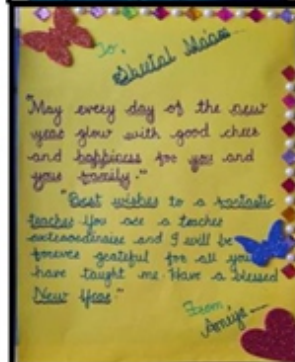 To,
Sheetal Ma'am
"May every day of the new
year glow with good cheer
and happiness for you and
your family."
"Best wishes to a fantastic
teacher You are a teacher
extraordinaire and I will be
forever grateful for all you
have taught me. Have a blessed
New Year."
From
Amiya